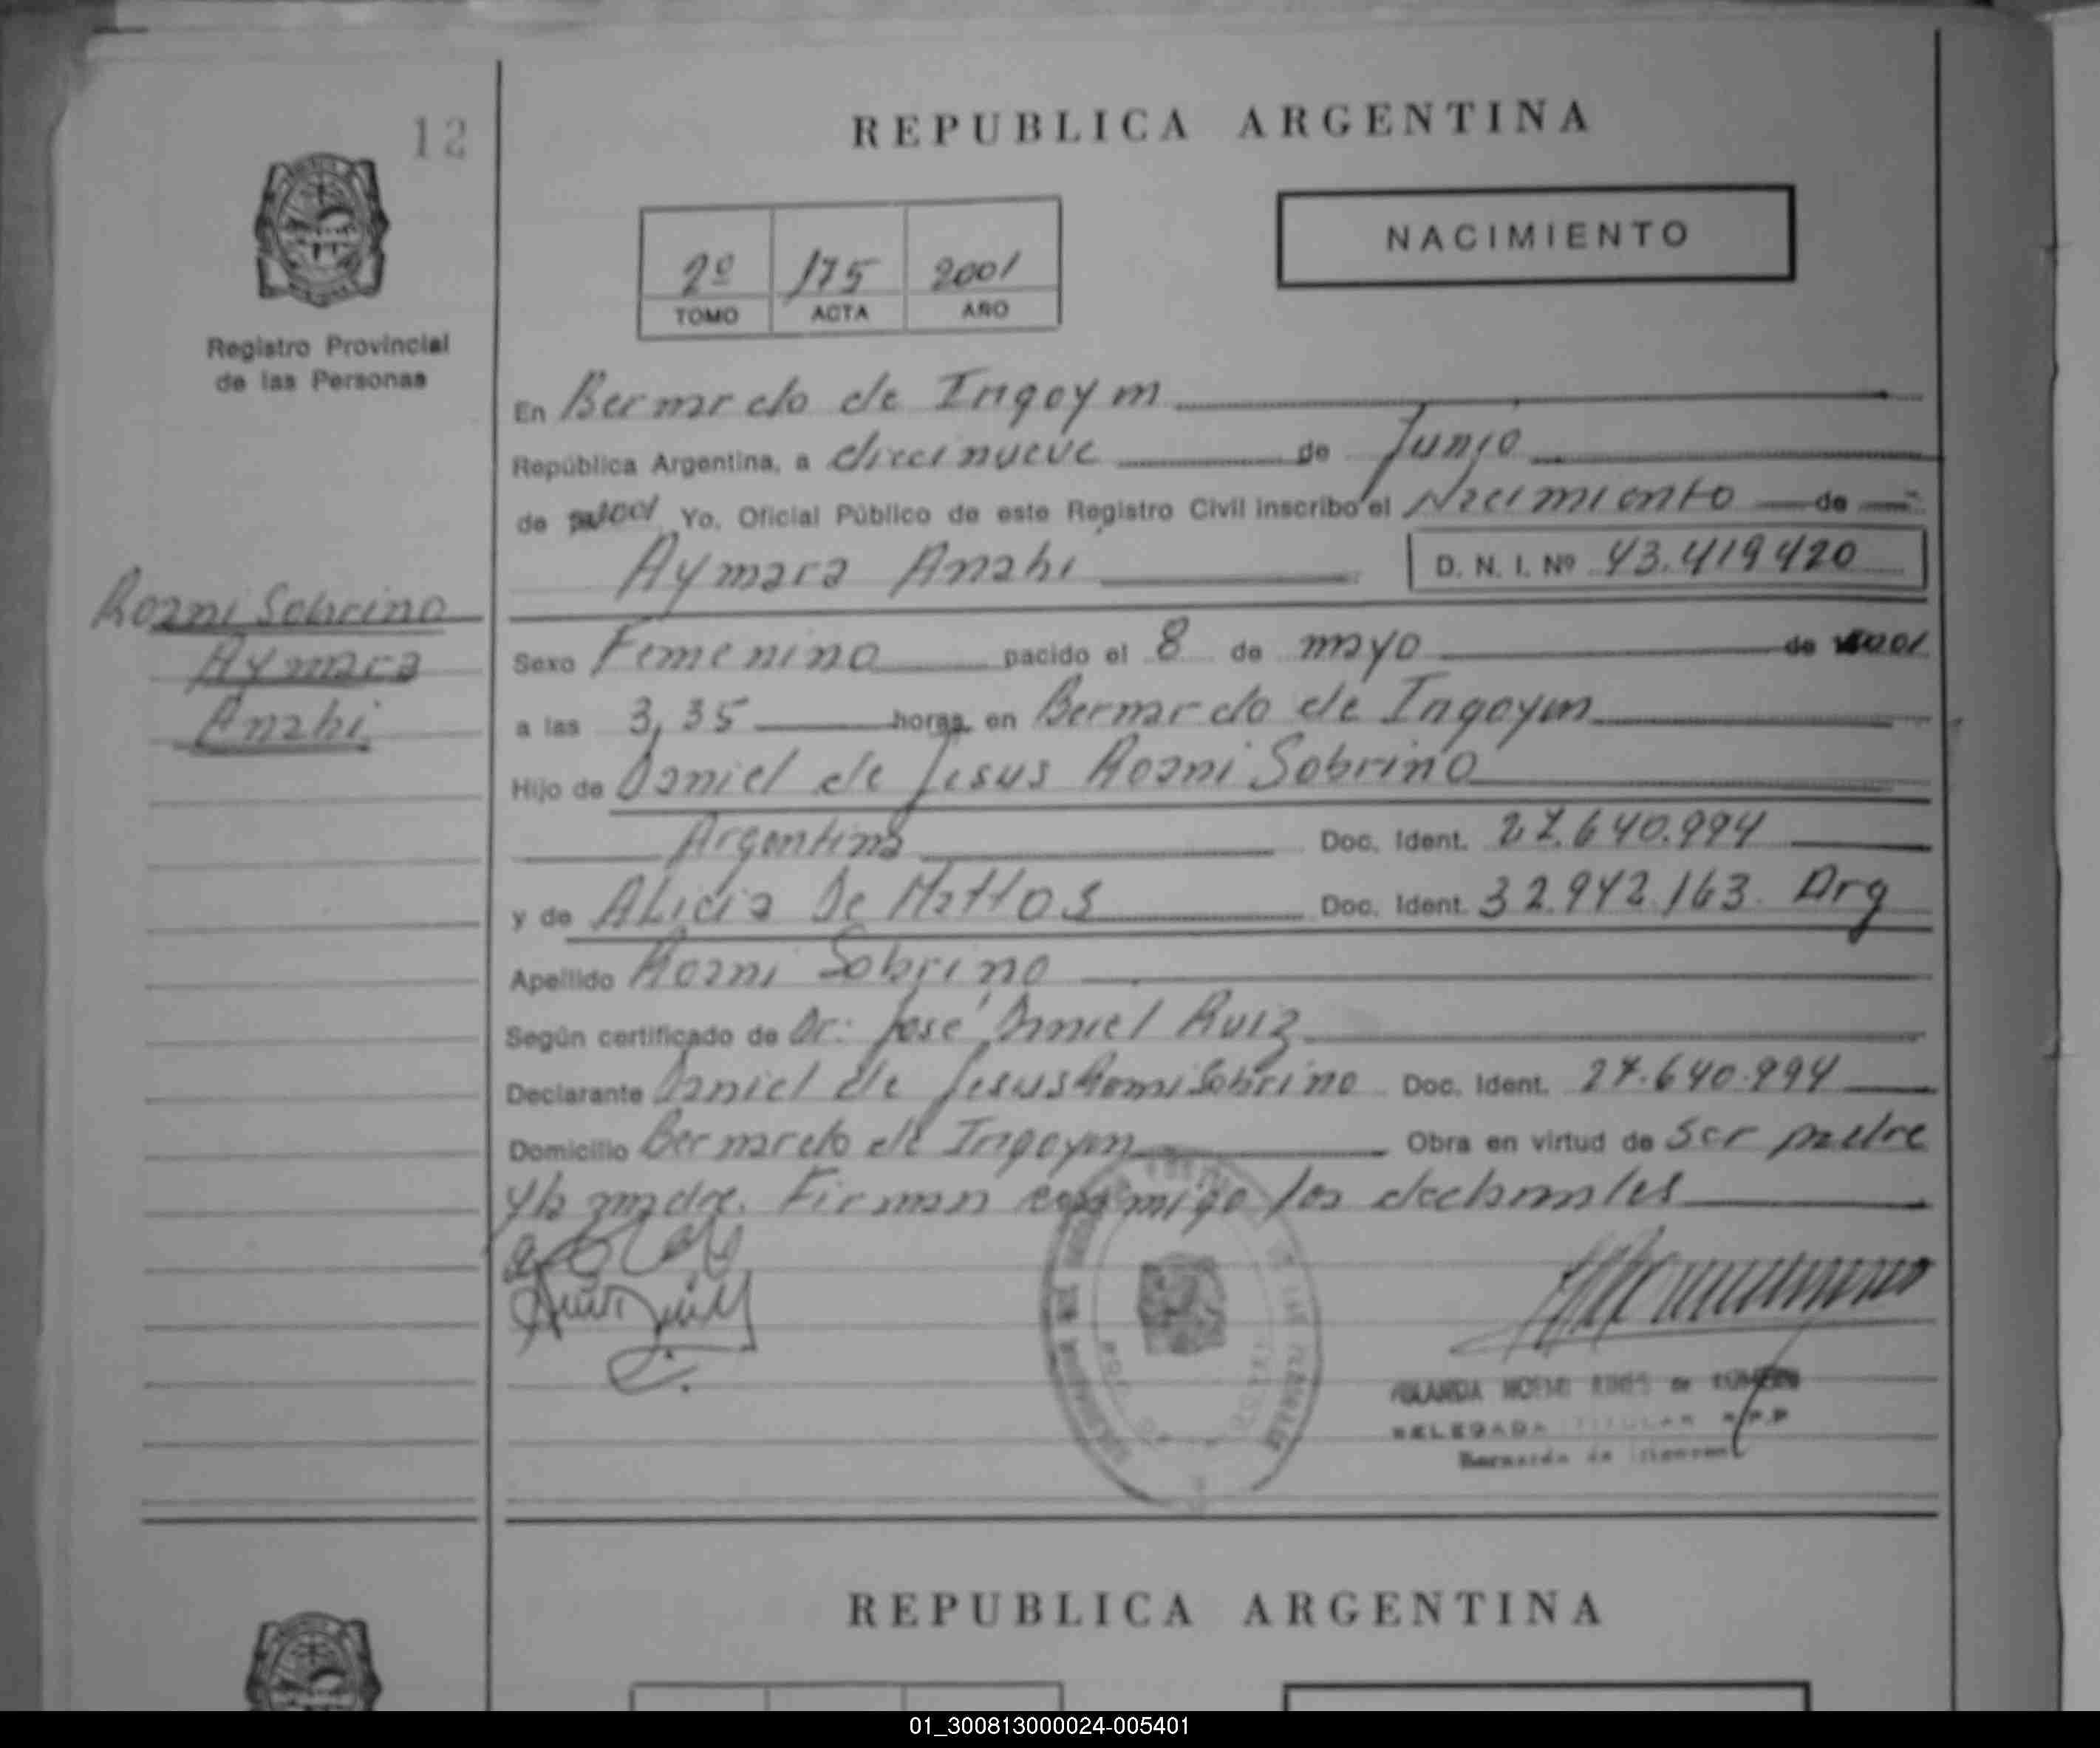 12
REPUBLICA ARGENTINA
NACIMIENTO
2º 175 2001
TOMO ACTA AÑO
Registro Provincial
de las Personas
En Bernardo de Irigoyen
República Argentina, a diecinueve de Junio
de 2001 Yo, Oficial Público de este Registro Civil inscribo el Nacimiento de
Aymara Anahi D. N. I. Nº 43.419420
Roani Sobrino
Aymara
Anahi
Sexo Femenino nacido el 8 de mayo de 2001
a las 3,35 horas, en Bernardo de Irigoyen
Hijo de Daniel de Jesus Roani Sobrino
Argentina Doc. Ident. 27.640.994
y de ALicia De Mattos Doc. Ident. 32.942.163. Arg
Apellido Roani Sobrino
Según certificado de Dr: José Daniel Ruiz
Declarante Daniel de Jesus Roani Sobrino Doc. Ident. 27.640.994
Domicilio Bernardo de Irigoyen Obra en virtud de ser padre
y la madre. Firman conmigo los declarantes
DELEGADA TITULAR R.P.P
Bernardo de Irigoyen
REPUBLICA ARGENTINA
01_300813000024-005401